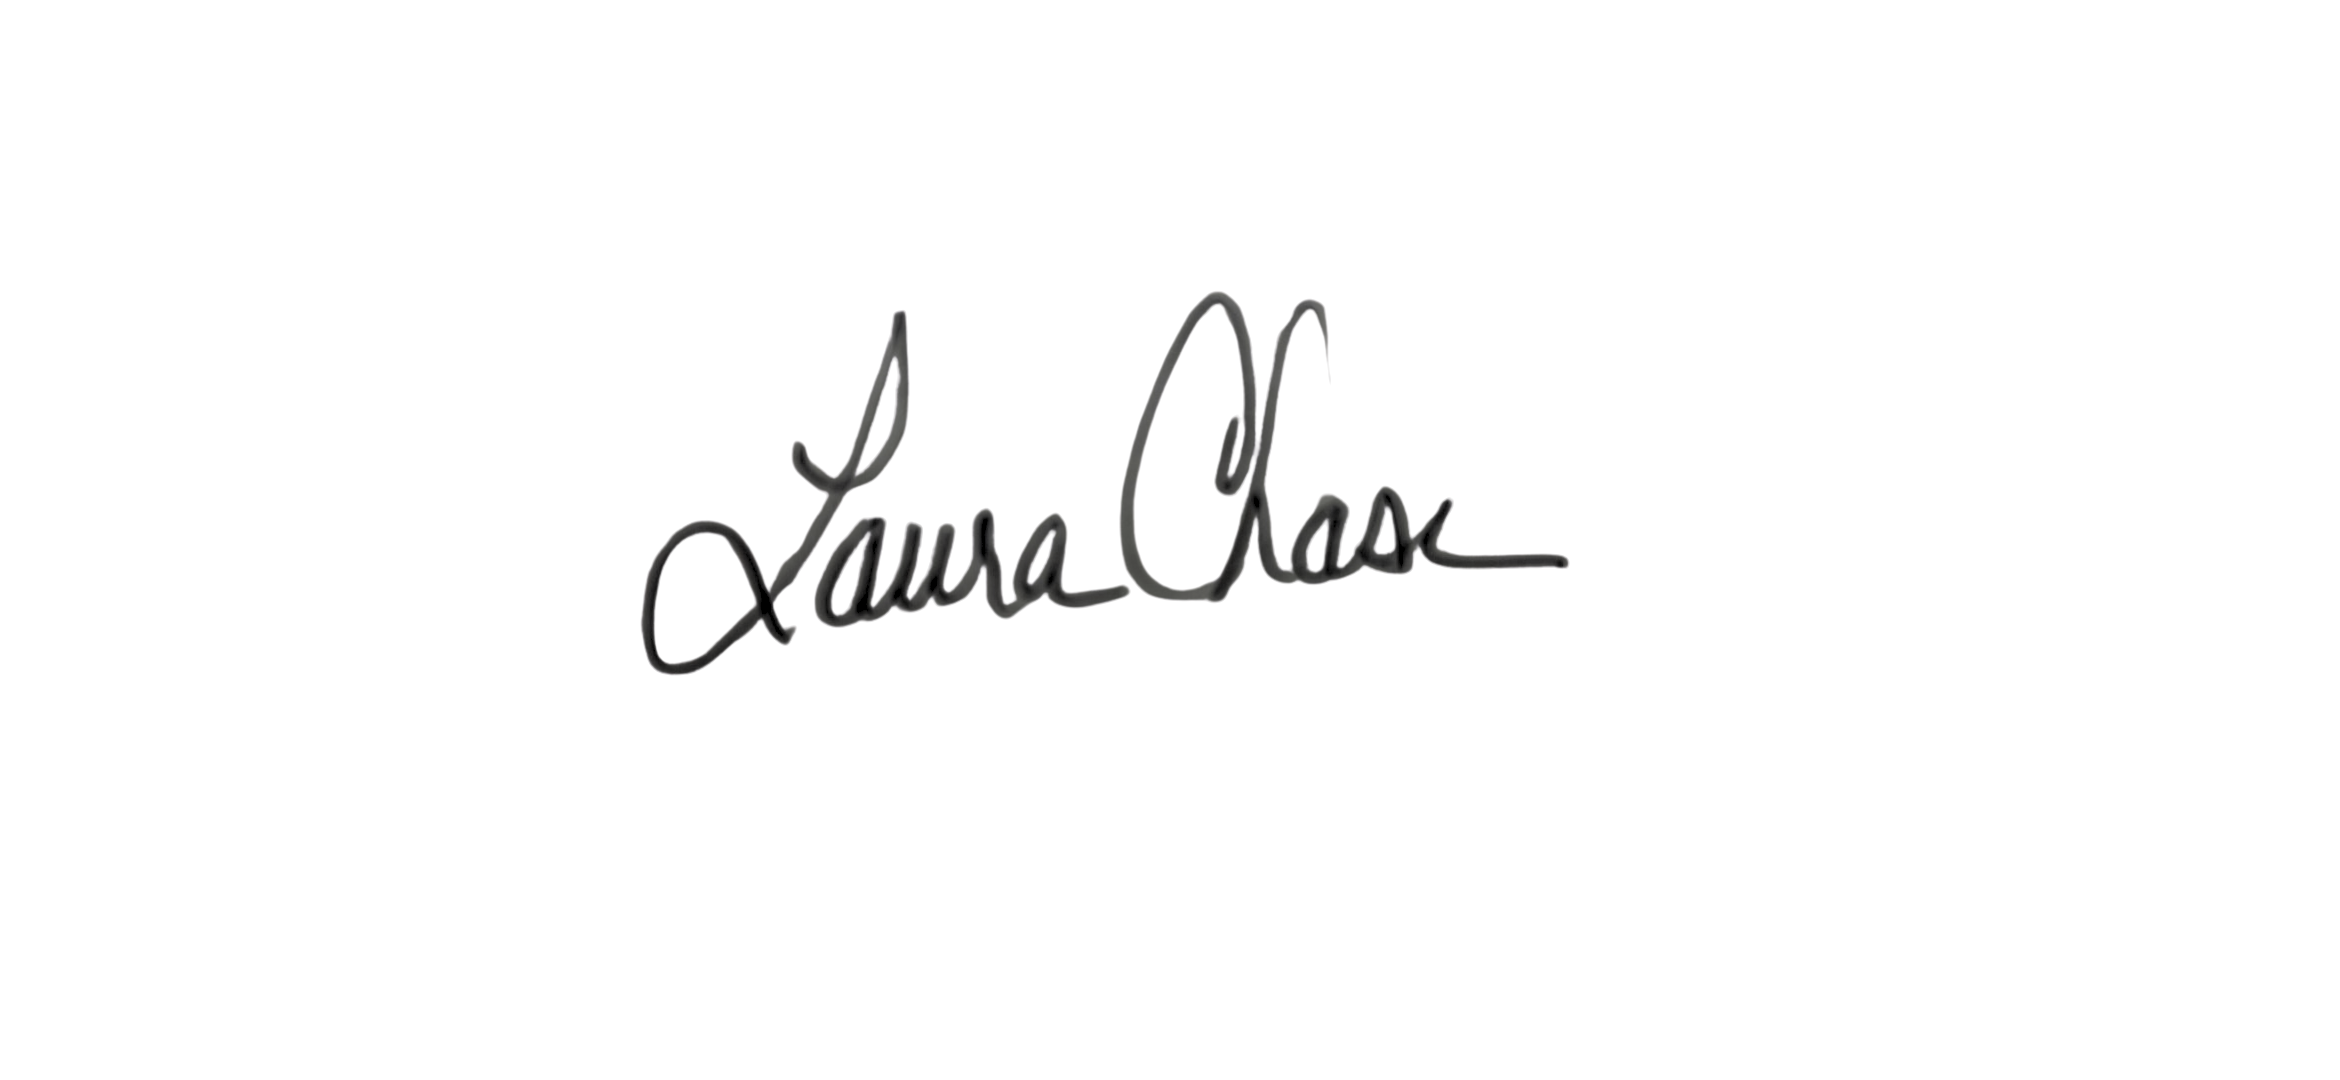 Laura Chase